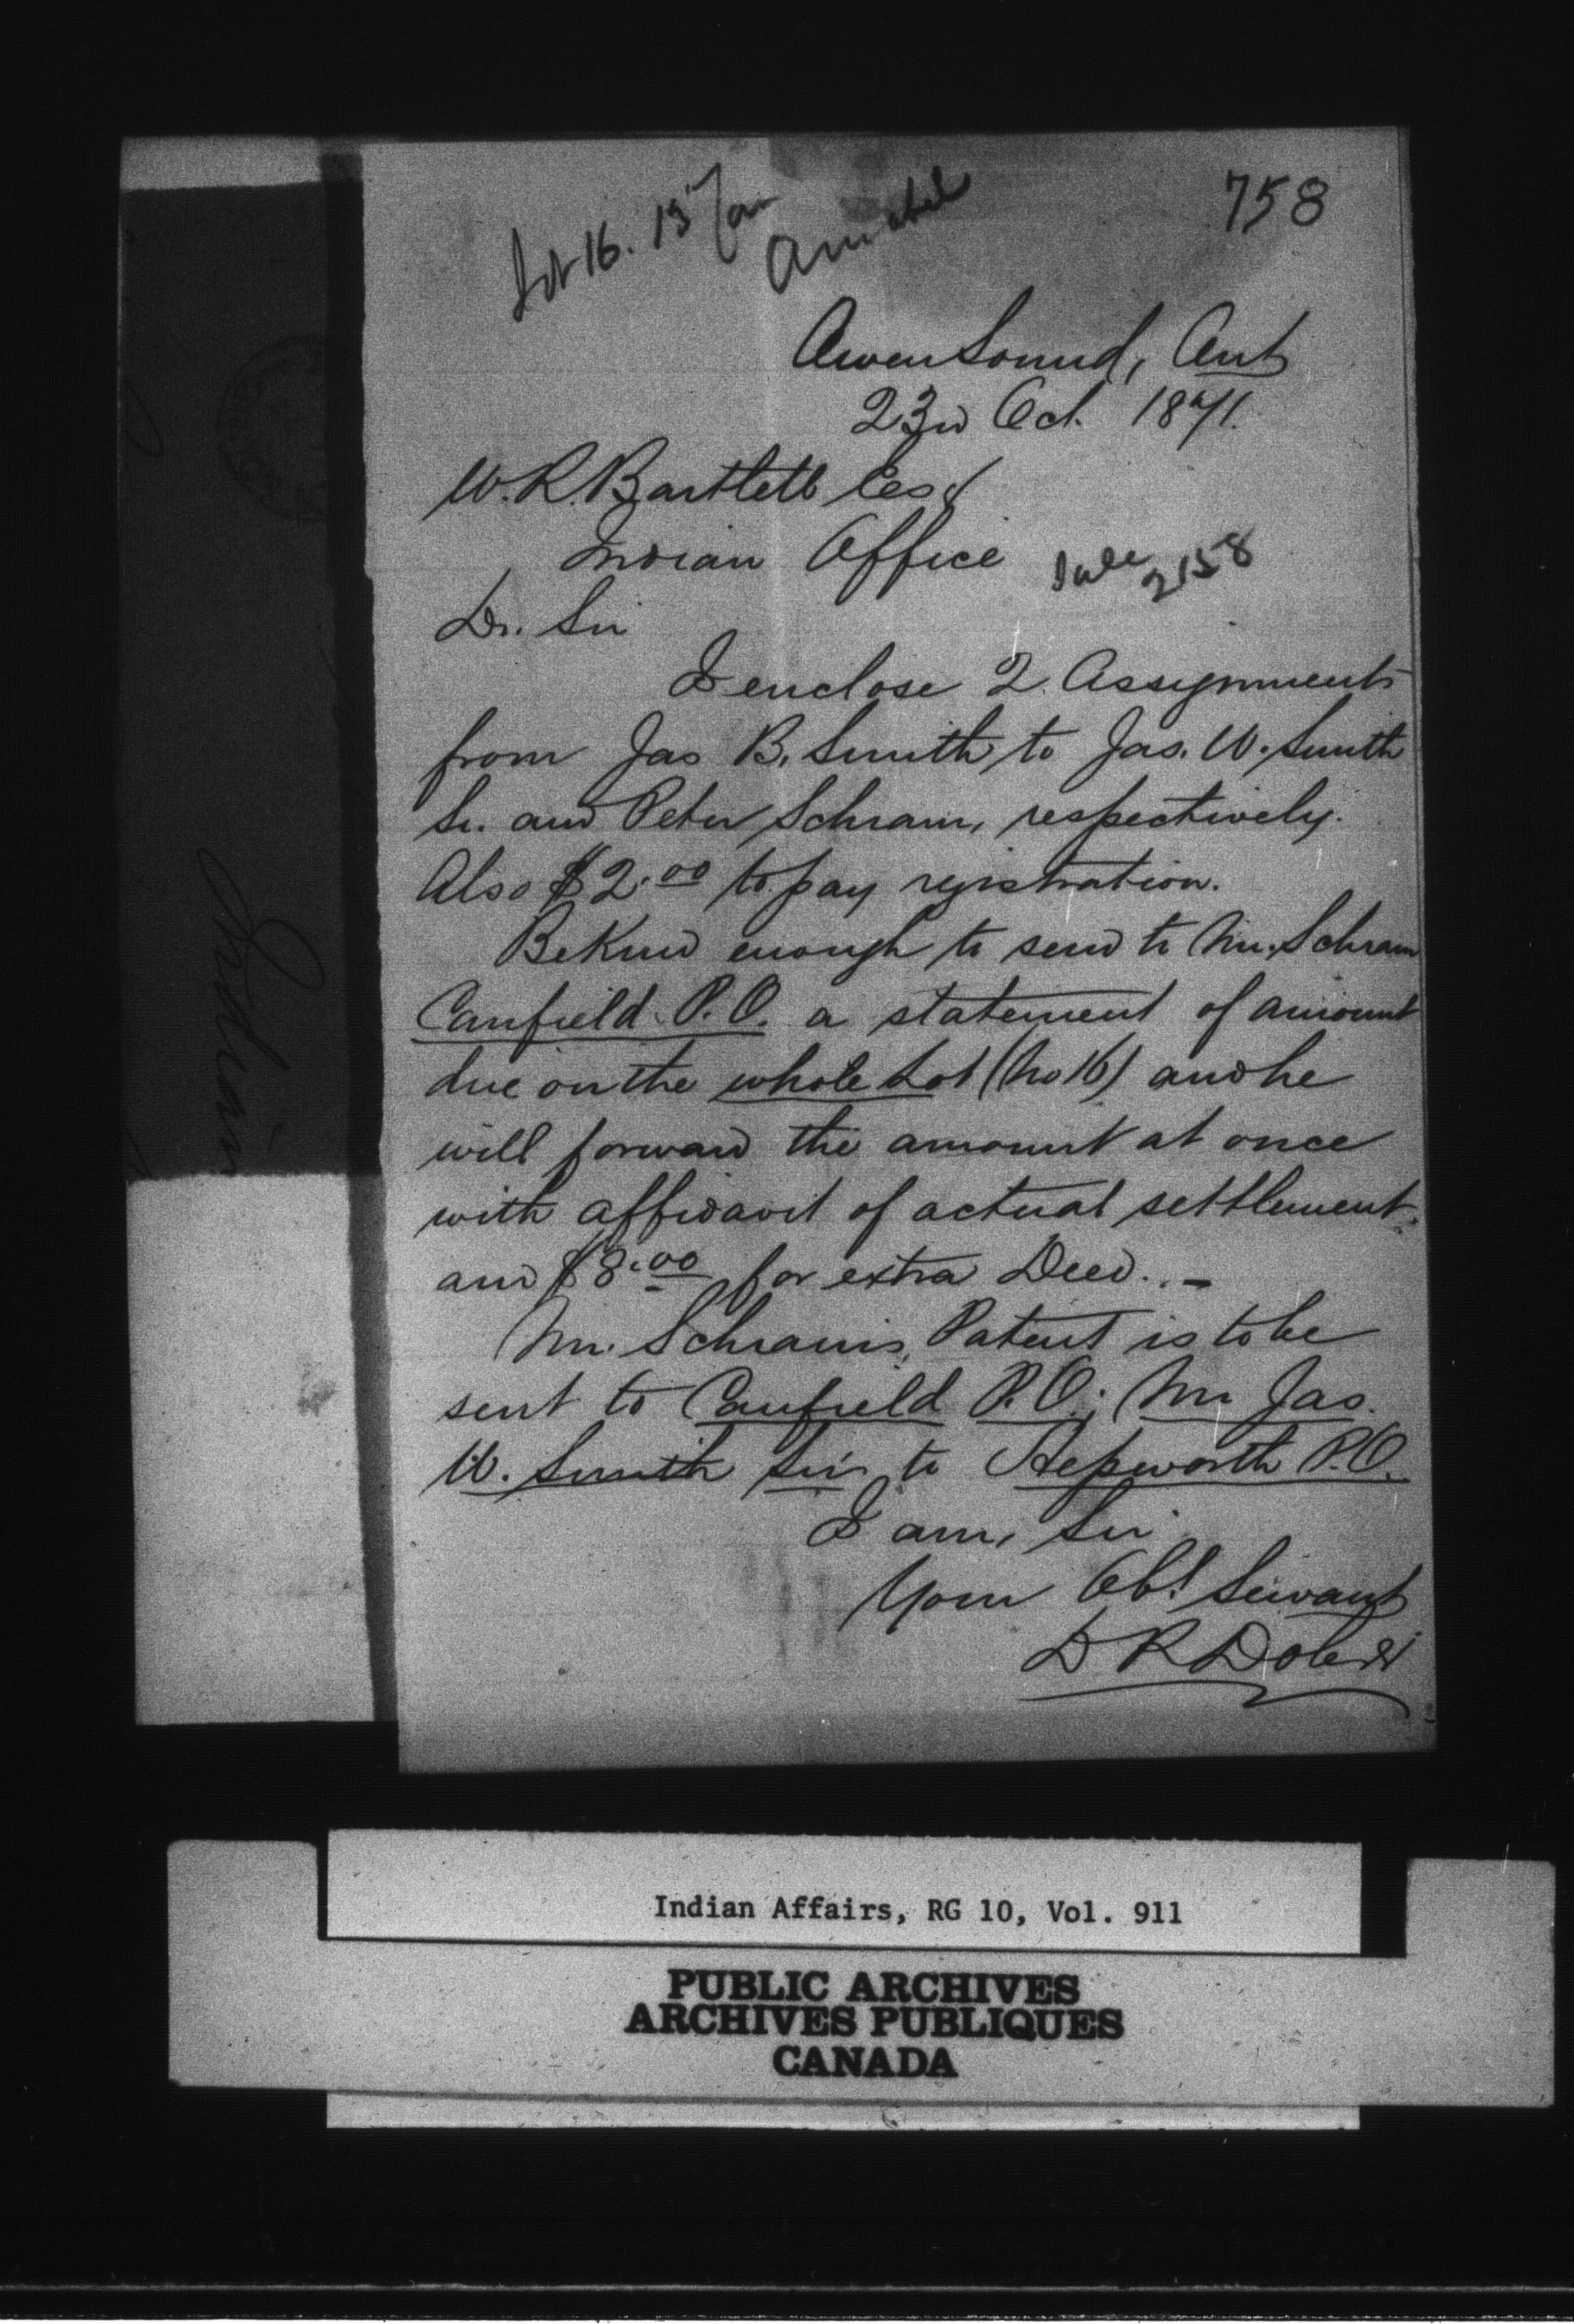 758
Lot 16. 15 Con
Amabel
Owen Sound, Ont
23rd Oct. 1871.
W. R. Bartlett Esq
Indian Office
Sale 2158
Dr. Sir
I enclose 2 Assignments
from Jas B. Smith to Jas. W. Smith
Sr. and Peter Schram, respectively.
Also $2.00 to pay registration.
Be Kind enough to send to Mr. Schram
Canfield P.O. a statement of amount
due on the whole Lot (No 16) and he
will forward the amount at once
with affidavit of actual settlement
and $8.00 for extra Deed. -
Mr. Schram's Patent is to be
sent to Canfield P.O; Mr Jas.
W. Smith Sr's to Hepworth P.O.
I am, Sir
Your Obt Servant
D R Dobie
Indian
Indian Affairs, RG 10, Vol. 911
PUBLIC ARCHIVES
ARCHIVES PUBLIQUES
CANADA